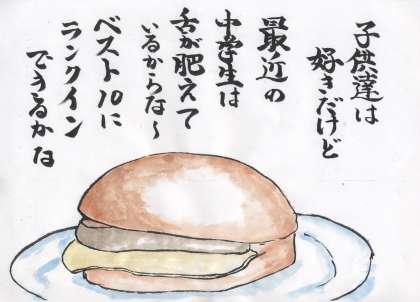 子供達は
好きだけど
最近の
中学生は
舌が肥えて
いるからな〜
ベスト10に
ランクイン
できるかな